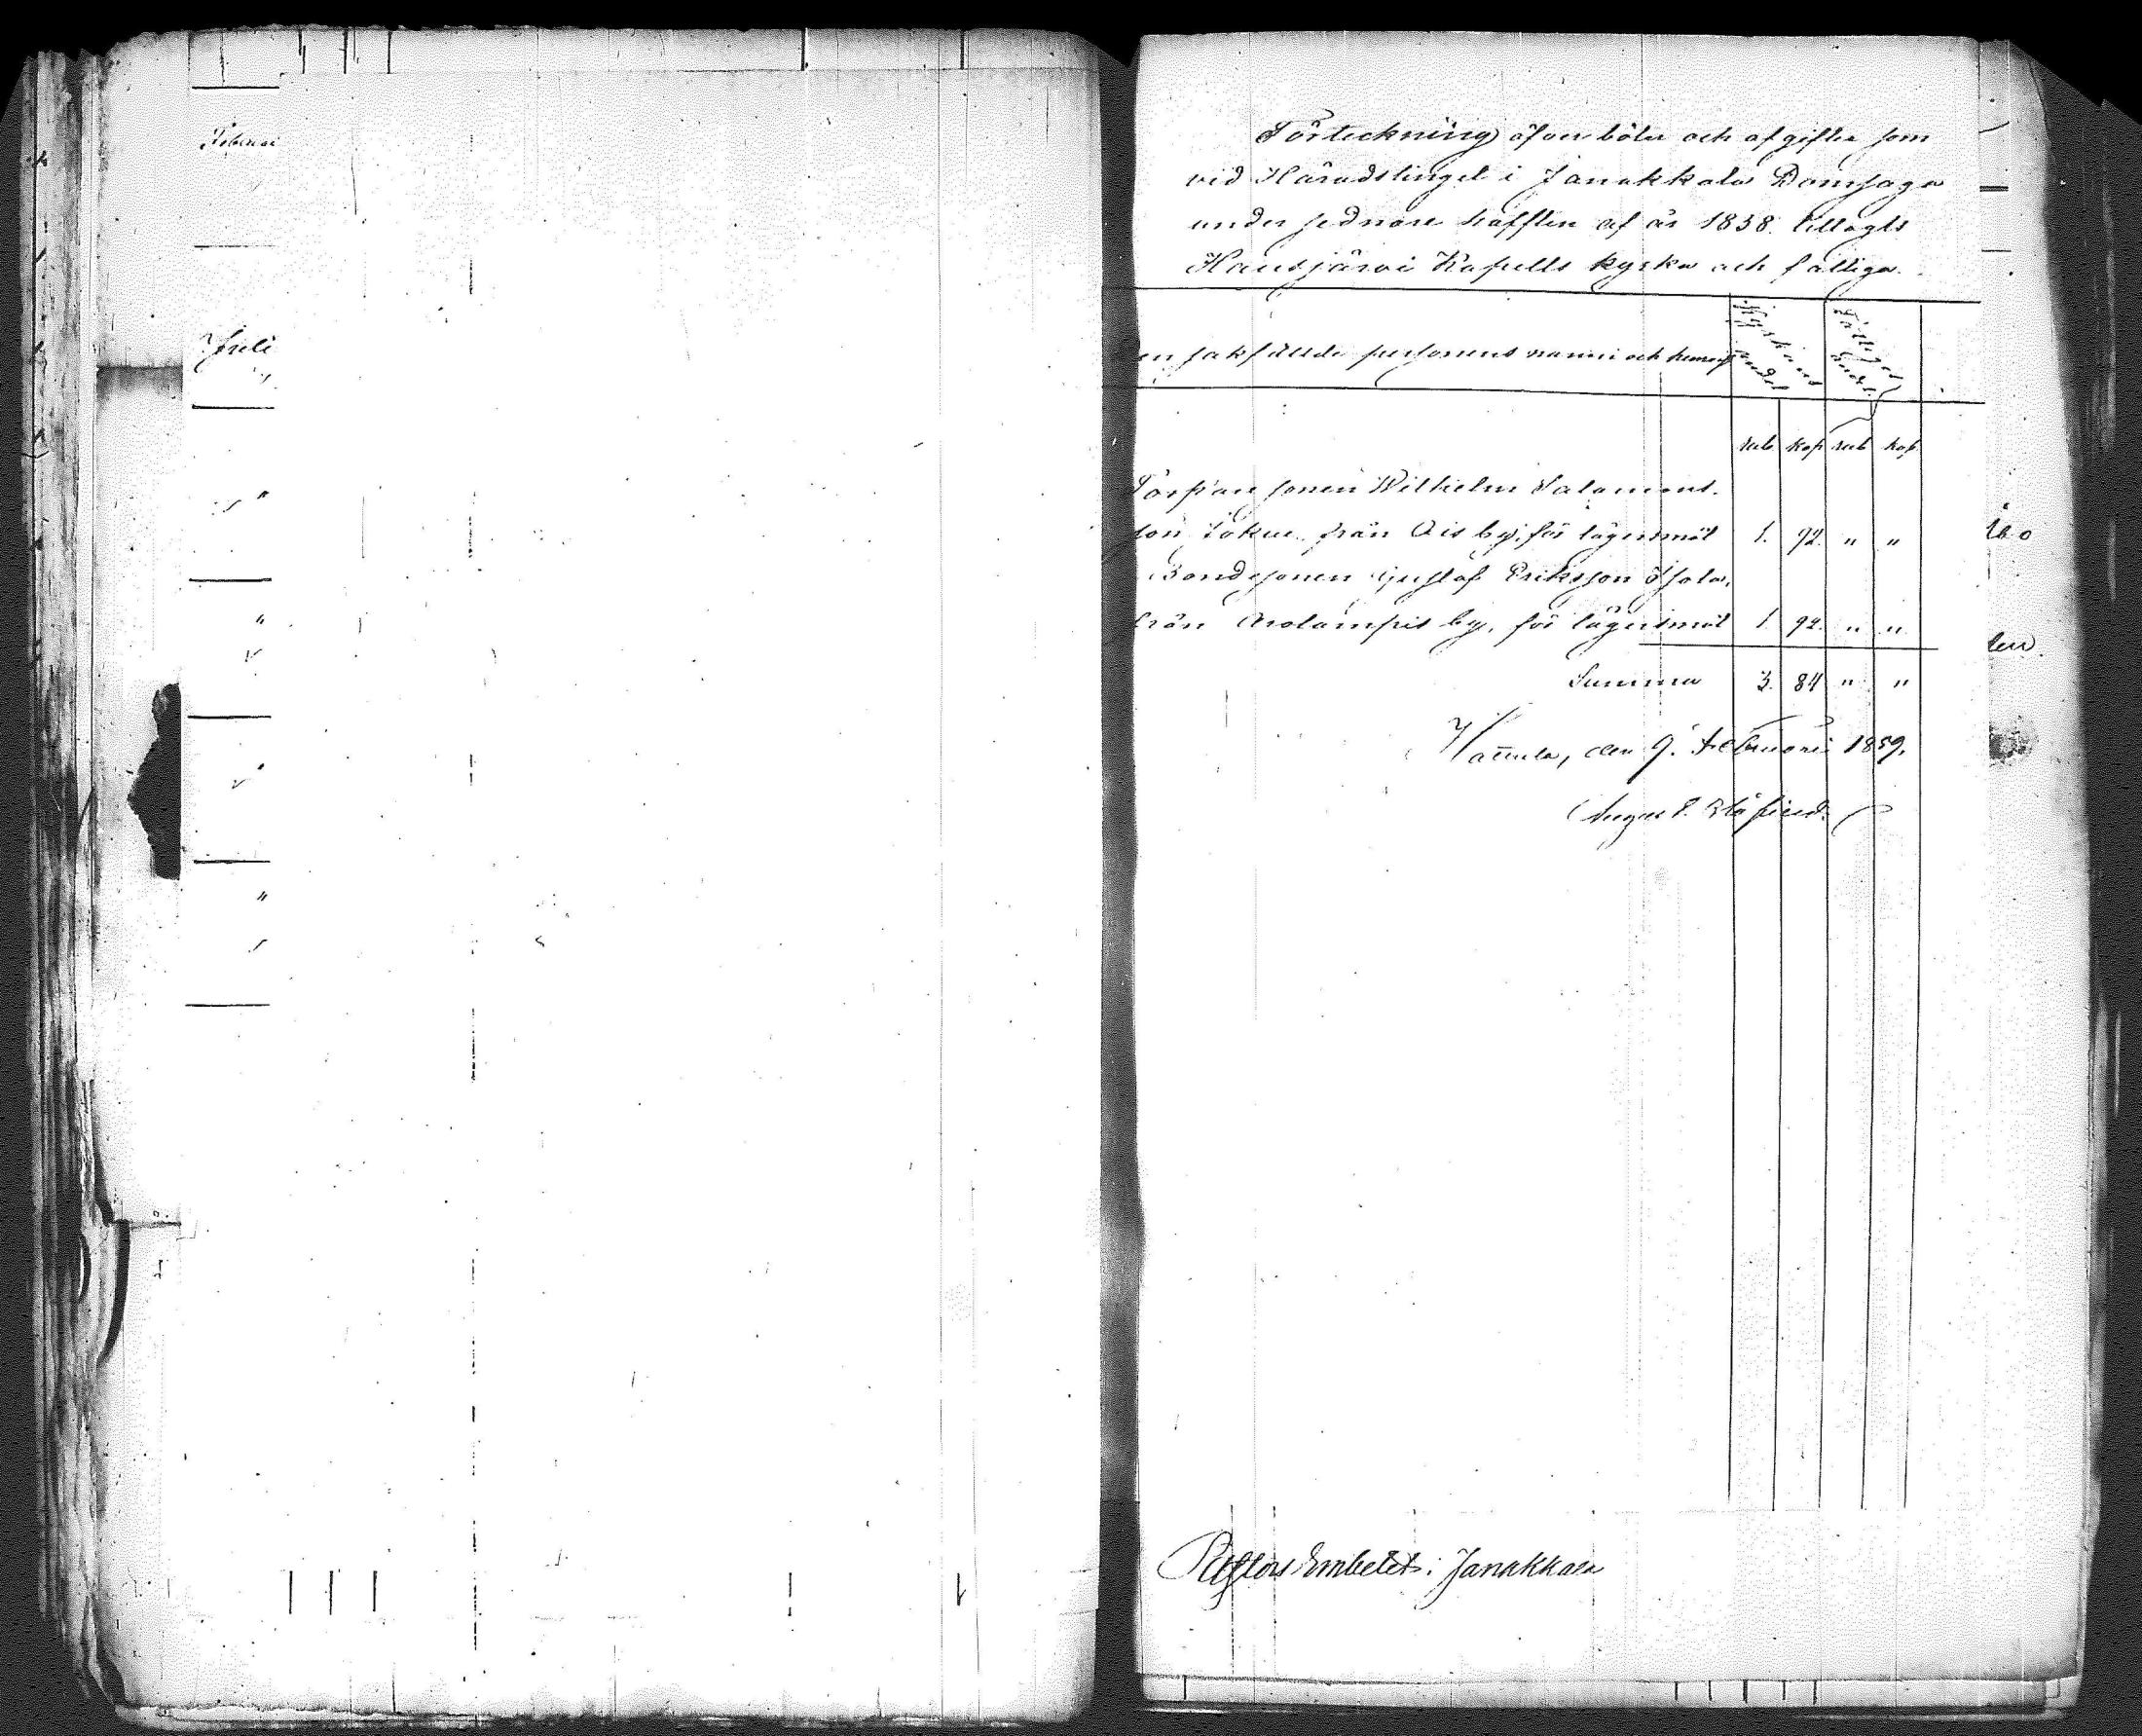 Februari
Juli
Förteckning öfver böter och afgifter som
vid Häradstinget i Janakkala Domsaga
under sednare hälften af år 1858 tillagts
Hausjärvi Kapells kyrka och fattiga.
en sakfällde personens namn och hemvist
Kyrkans andel
Fattiges andel
rub kop rub kop
Torpare sonen Wilhelm Salomons-
son Jokue från Ois by, för lägersmål 1. 92. " "
Bondesonen Gustaf Eriksson Isola,
från Arolampis by, för lägersmål 1. 92. " "
Summa 3. 84 " "
Hattula, den 9. Februari 1859.
Pastors Embetet i Janakkala